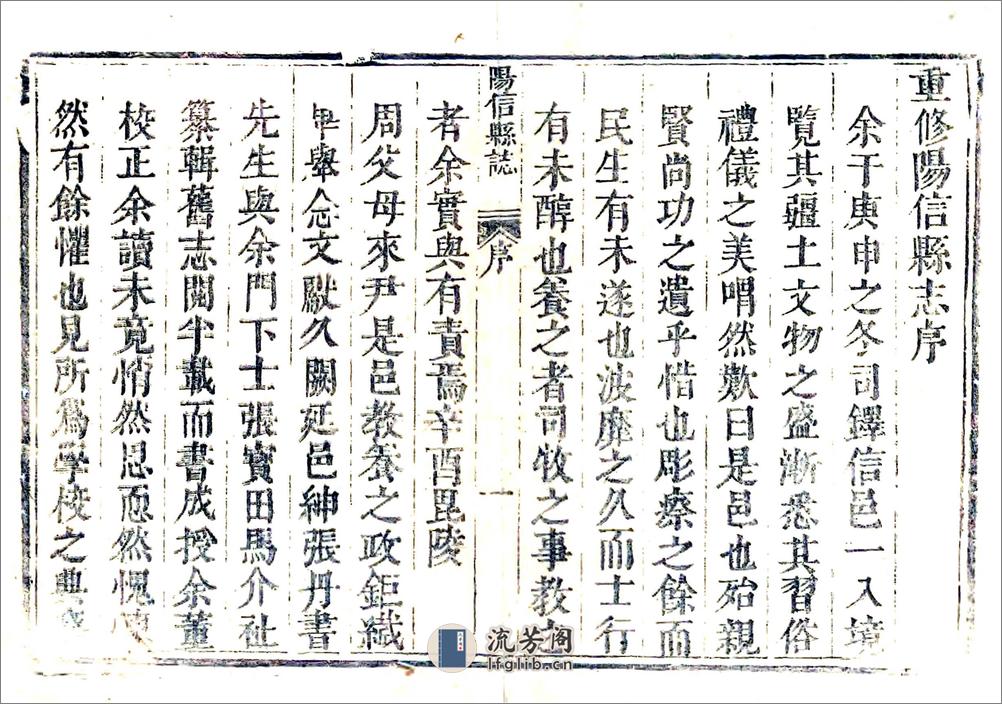 重修陽信縣志序
余于庚申之冬司鐸信邑一入境
覽其疆土文物之盛漸悉其習俗
禮儀之美喟然歎曰是邑也殆親
賢尚功之遺乎惜也彫瘵之餘而
民生有未遂也波靡之久而士行
有未醇也養之者司牧之事教之
陽信縣誌
序
一
者余實與有責焉辛酉毘陵
周父母來尹是邑教養之政鉅纎
畢舉念文獻久闕延邑紳張丹書
先生與余門下士張寶田馬介社
纂輯舊志閱半載而書成授余董
校正余讀未竟悄然思恧然愧
然有餘懼也見所爲學校之典
流芳閣
lfglib.cn